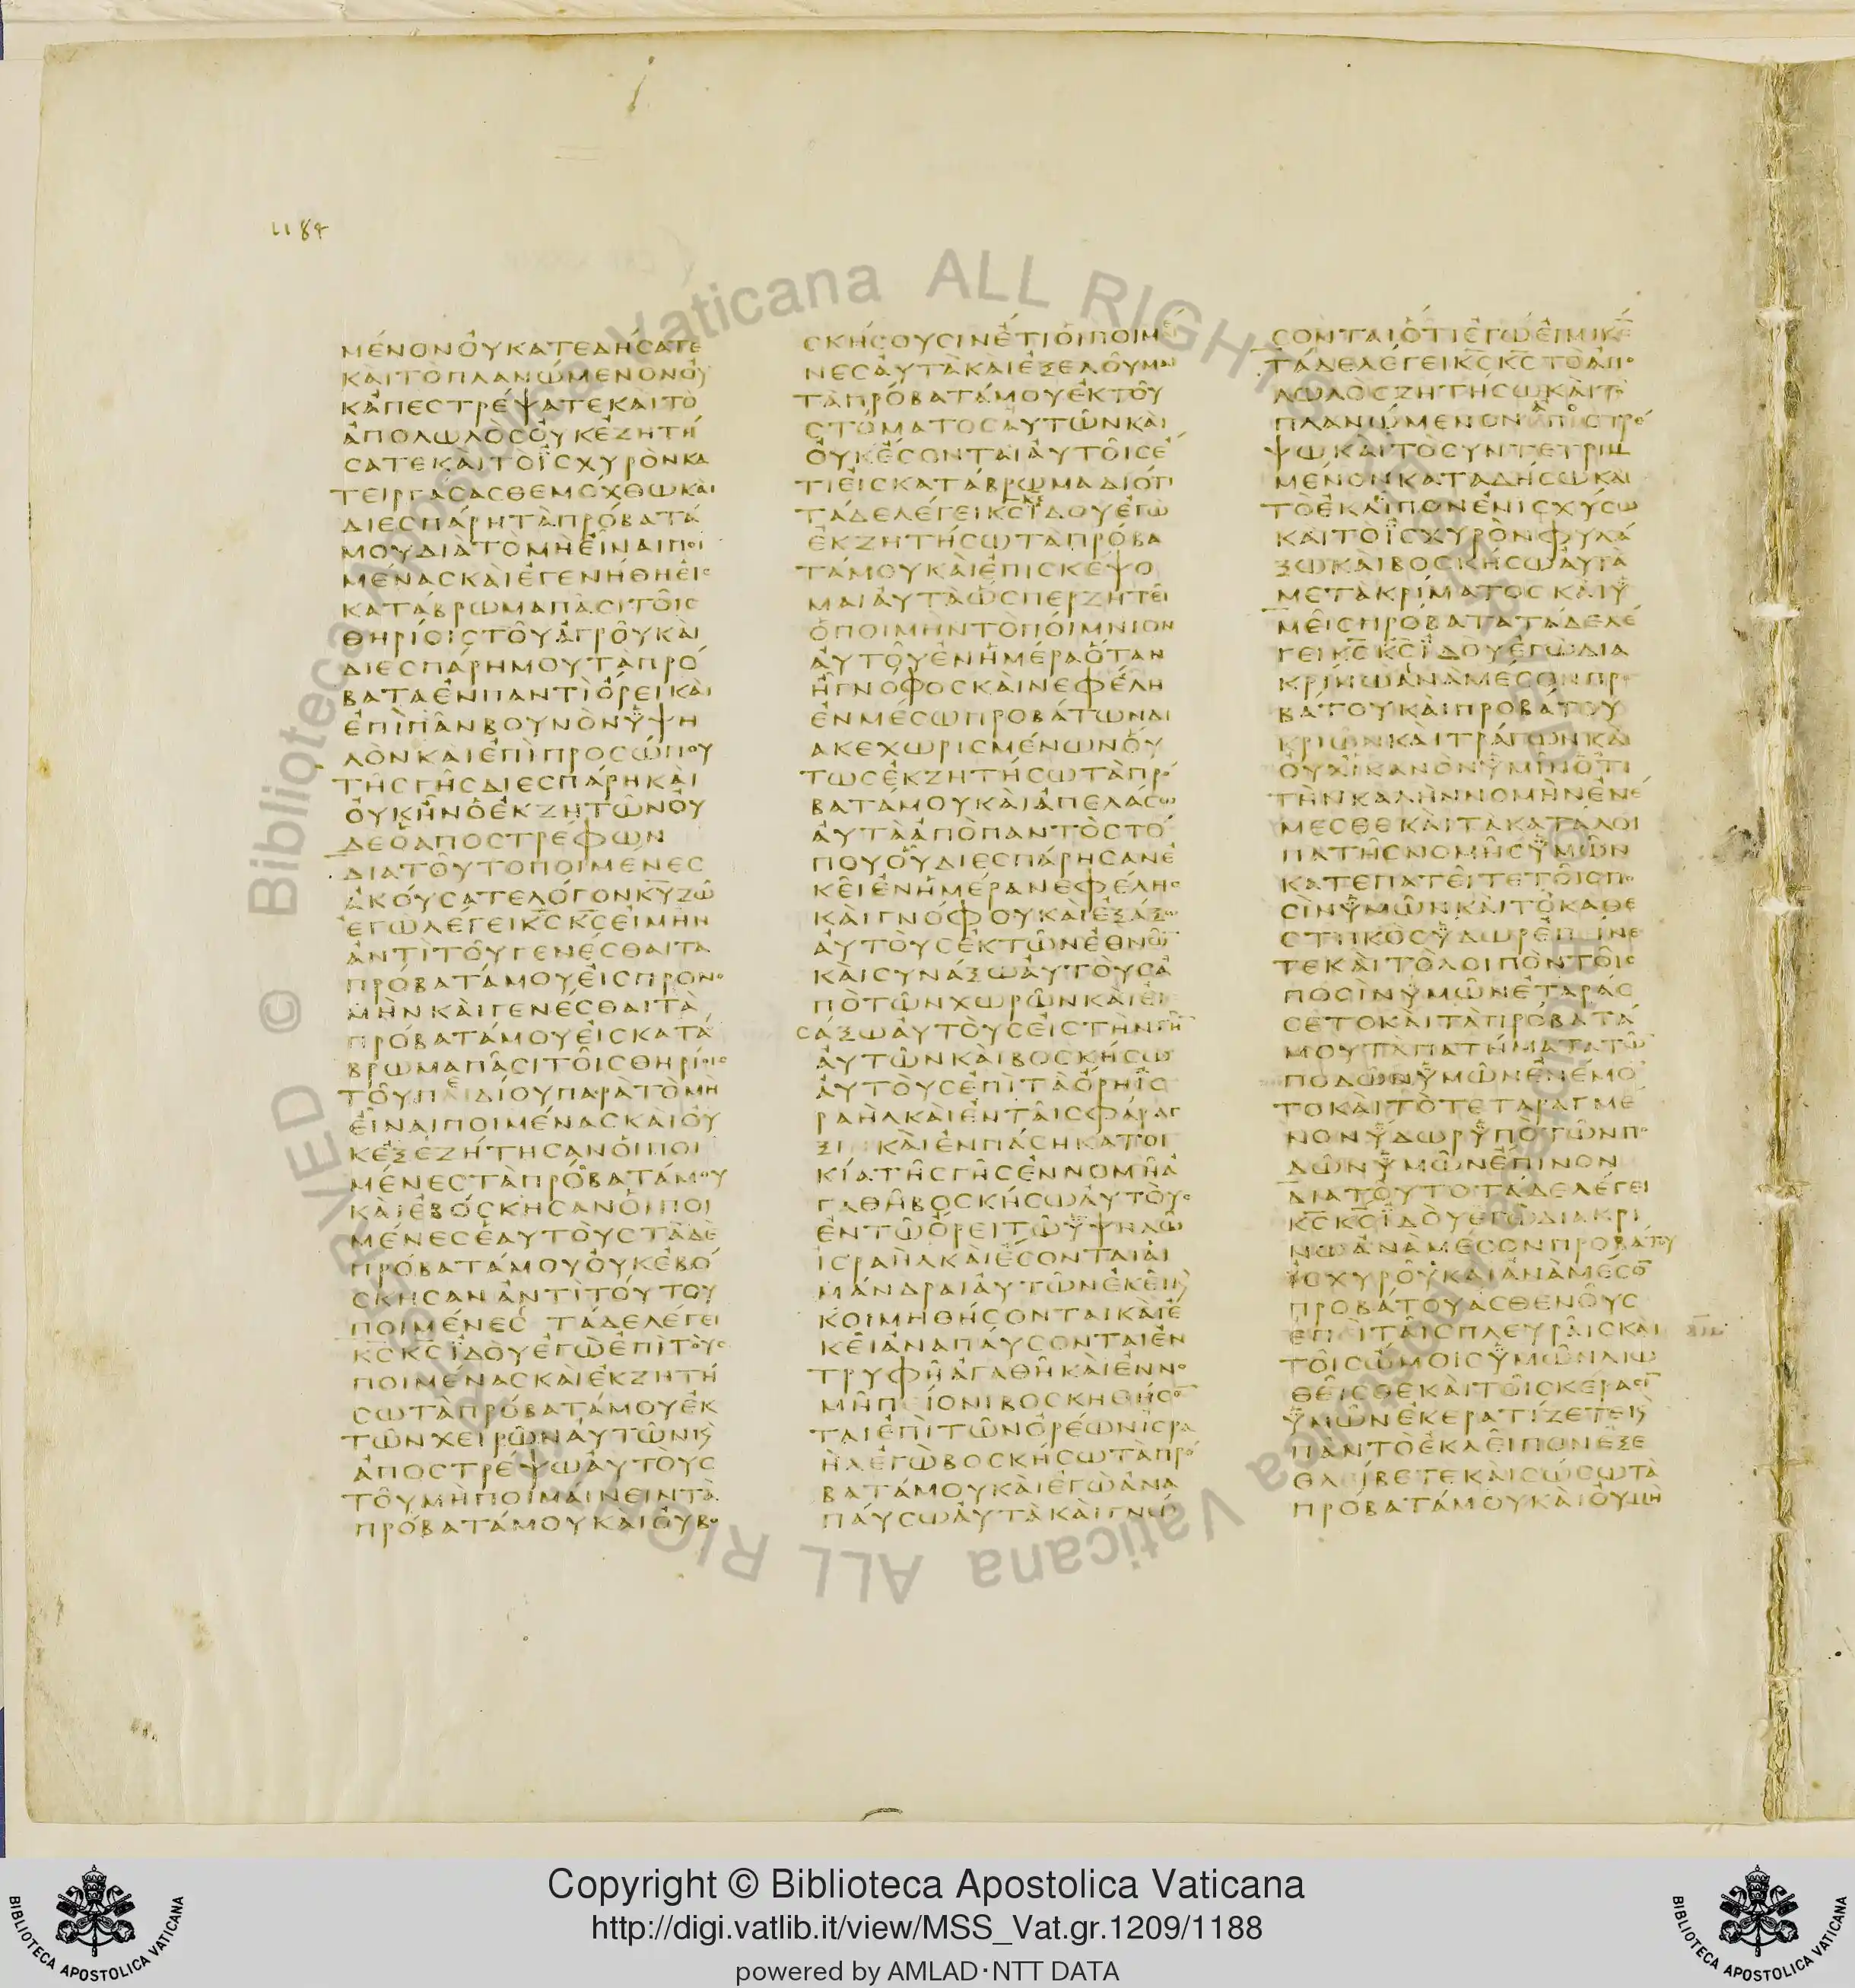 1184
ΜΕΝΟΝΟΥΚΑΤΕΔΗΣΑΤΕ
ΚΑΙΤΟΠΛΑΝΩΜΕΝΟΝΟΥ
ΚΑΠΕΣΤΡΕΨΑΤΕΚΑΙΤΟ
ΑΠΟΛΩΛΟΣΟΥΚΕΖΗΤΗ
ΣΑΤΕΚΑΙΤΟΪΣΧΥΡΟΝΚΑ
ΤΕΙΡΓΑΣΑΣΘΕΜΟΧΘΩΚΑΙ
ΔΙΕΣΠΑΡΗΤΑΠΡΟΒΑΤΑ
ΜΟΥΔΙΑΤΟΜΗΕΙΝΑΙΠΟΙ
ΜΕΝΑΣΚΑΙΕΓΕΝΗΘΗΕΙΣ
ΚΑΤΑΒΡΩΜΑΠΑΣΙΤΟΙΣ
ΘΗΡΙΟΙΣΤΟΥΑΓΡΟΥΚΑΙ
ΔΙΕΣΠΑΡΗΜΟΥΤΑΠΡΟ
ΒΑΤΑΕΝΠΑΝΤΙΟΡΕΙΚΑΙ
ΕΠΙΠΑΝΒΟΥΝΟΝΫΨΗ
ΛΟΝΚΑΙΕΠΙΠΡΟΣΩΠΟΥ
ΤΗΣΓΗΣΔΙΕΣΠΑΡΗΚΑΙ
ΟΥΚΗΝΟΕΚΖΗΤΩΝΟΥ
ΔΕΟΑΠΟΣΤΡΕΦΩΝ
ΔΙΑΤΟΥΤΟΠΟΙΜΕΝΕΣ
ΑΚΟΥΣΑΤΕΛΟΓΟΝΚΥΖΩ
ΕΓΩΛΕΓΕΙΚΣΚΣΕΙΜΗΝ
ΑΝΤΙΤΟΥΓΕΝΕΣΘΑΙΤΑ
ΠΡΟΒΑΤΑΜΟΥΕΙΣΠΡΟΝΟ
ΜΗΝΚΑΙΓΕΝΕΣΘΑΙΤΑ
ΠΡΟΒΑΤΑΜΟΥΕΙΣΚΑΤΑ
ΒΡΩΜΑΠΑΣΙΤΟΙΣΘΗΡΙΟΙΣ
ΤΟΥΠΑΙΔΙΟΥΠΑΡΑΤΟΜΗ
ΕΙΝΑΙΠΟΙΜΕΝΑΣΚΑΙΟΥ
ΚΕΞΕΖΗΤΗΣΑΝΟΙΠΟΙ
ΜΕΝΕΣΤΑΠΡΟΒΑΤΑΜΟΥ
ΚΑΙΕΒΟΣΚΗΣΑΝΟΙΠΟΙ
ΜΕΝΕΣΕΑΥΤΟΥΣΤΑΔΕ
ΠΡΟΒΑΤΑΜΟΥΟΥΚΕΒΟ
ΣΚΗΣΑΝΑΝΤΙΤΟΥΤΟΥ
ΠΟΙΜΕΝΕΣ ΤΑΔΕΛΕΓΕΙ
ΚΣΚΣΪΔΟΥΕΓΩΕΠΙΤΟΥΣ
ΠΟΙΜΕΝΑΣΚΑΙΕΚΖΗΤΗ
ΣΩΤΑΠΡΟΒΑΤΑΜΟΥΕΚ
ΤΩΝΧΕΙΡΩΝΑΥΤΩΝΚ
ΑΠΟΣΤΡΕΨΩΑΥΤΟΥΣ
ΤΟΥΜΗΠΟΙΜΑΙΝΕΙΝΤΑ
ΠΡΟΒΑΤΑΜΟΥΚΑΙΟΥΒΟ
ΣΚΗΣΟΥΣΙΝΕΤΙΟΙΠΟΙΜΕ
ΝΕΣΑΥΤΑΚΑΙΕΞΕΛΟΥΜΑΙ
ΤΑΠΡΟΒΑΤΑΜΟΥΕΚΤΟΥ
ΣΤΟΜΑΤΟΣΑΥΤΩΝΚΑΙ
ΟΥΚΕΣΟΝΤΑΙΑΥΤΟΙΣΕ
ΤΙΕΙΣΚΑΤΑΒΡΩΜΑΔΙΟΤΙ
ΤΑΔΕΛΕΓΕΙΚΣΪΔΟΥΕΓΩ
ΕΚΖΗΤΗΣΩΤΑΠΡΟΒΑ
ΤΑΜΟΥΚΑΙΕΠΙΣΚΕΨΟ
ΜΑΙΑΥΤΑΩΣΠΕΡΖΗΤΕΙ
ΟΠΟΙΜΗΝΤΟΠΟΙΜΝΙΟΝ
ΑΥΤΟΥΕΝΗΜΕΡΑΟΤΑΝ
ΗΓΝΟΦΟΣΚΑΙΝΕΦΕΛΗ
ΕΝΜΕΣΩΠΡΟΒΑΤΩΝΔΙ
ΑΚΕΧΩΡΙΣΜΕΝΩΝΟΥ
ΤΩΣΕΚΖΗΤΗΣΩΤΑΠΡΟ
ΒΑΤΑΜΟΥΚΑΙΑΠΕΛΑΣΩ
ΑΥΤΑΑΠΟΠΑΝΤΟΣΤΟ
ΠΟΥΟΥΔΙΕΣΠΑΡΗΣΑΝΕ
ΚΕΙΕΝΗΜΕΡΑΝΕΦΕΛΗΣ
ΚΑΙΓΝΟΦΟΥΚΑΙΕΞΑΞΩ
ΑΥΤΟΥΣΕΚΤΩΝΕΘΝΩ
ΚΑΙΣΥΝΑΞΩΑΥΤΟΥΣΑ
ΠΟΤΩΝΧΩΡΩΝΚΑΙΕΙ
ΣΑΞΩΑΥΤΟΥΣΕΙΣΤΗΝΓΗ
ΑΥΤΩΝΚΑΙΒΟΣΚΗΣΩ
ΑΥΤΟΥΣΕΠΙΤΑΟΡΗΪΣ
ΡΑΗΛΚΑΙΕΝΤΑΙΣΦΑΡΑΓ
ΞΙ ΚΑΙΕΝΠΑΣΗΚΑΤΟΙ
ΚΙΑΤΗΣΓΗΣΕΝΝΟΜΗΑ
ΓΑΘΗΒΟΣΚΗΣΩΑΥΤΟΥΣ
ΕΝΤΩΟΡΕΙΤΩΫΨΗΛΩ
ΙΣΡΑΗΛΚΑΙΕΣΟΝΤΑΙΑΙ
ΜΑΝΔΡΑΙΑΥΤΩΝΕΚΕΙΚ
ΚΟΙΜΗΘΗΣΟΝΤΑΙΚΑΙΕ
ΚΕΙΑΝΑΠΑΥΣΟΝΤΑΙΕΝ
ΤΡΥΦΗΑΓΑΘΗΚΑΙΕΝΝΟ
ΜΗΠΙΟΝΙΒΟΣΚΗΘΗΣΟ
ΤΑΙΕΠΙΤΩΝΟΡΕΩΝΙΣΡΑ
ΗΛΕΓΩΒΟΣΚΗΣΩΤΑΠΡΟ
ΒΑΤΑΜΟΥΚΑΙΕΓΩΑΝΑ
ΠΑΥΣΩΑΥΤΑΚΑΙΓΝΩ
ΣΟΝΤΑΙΟΤΙΕΓΩΕΙΜΙΚΣ
ΤΑΔΕΛΕΓΕΙΚΣΚΣΤΟΑΠΟ
ΛΩΛΟΣΖΗΤΗΣΩΚΑΙΤΟ
ΠΛΑΝΩΜΕΝΟΝΑΠΟΣΤΡΕ
ΨΩΚΑΙΤΟΣΥΝΤΕΤΡΙΜ
ΜΕΝΟΝΚΑΤΑΔΗΣΩΚΑΙ
ΤΟΕΚΛΙΠΟΝΕΝΙΣΧΥΣΩ
ΚΑΙΤΟΪΣΧΥΡΟΝΦΥΛΑ
ΞΩΚΑΙΒΟΣΚΗΣΩΑΥΤΑ
ΜΕΤΑΚΡΙΜΑΤΟΣΚΑΙΫ
ΜΕΙΣΠΡΟΒΑΤΑΤΑΔΕΛΕ
ΓΕΙΚΣΚΣΪΔΟΥΕΓΩΔΙΑ
ΚΡΙΝΩΑΝΑΜΕΣΟΝΠΡΟ
ΒΑΤΟΥΚΑΙΠΡΟΒΑΤΟΥ
ΚΡΙΩΝΚΑΙΤΡΑΓΩΝΚΑΙ
ΟΥΧΙΚΑΝΟΝΫΜΙΝΟΤΙ
ΤΗΝΚΑΛΗΝΝΟΜΗΝΕΝΕ
ΜΕΣΘΕΚΑΙΤΑΚΑΤΑΛΟΙ
ΠΑΤΗΣΝΟΜΗΣΫΜΩΝ
ΚΑΤΕΠΑΤΕΙΤΕΤΟΙΣΠΟ
ΣΙΝΫΜΩΝΚΑΙΤΟΚΑΘΕ
ΣΤΗΚΟΣΫΔΩΡΕΠΙΝΕ
ΤΕΚΑΙΤΟΛΟΙΠΟΝΤΟΙΣ
ΠΟΣΙΝΫΜΩΝΕΤΑΡΑΣ
ΣΕΤΟΚΑΙΤΑΠΡΟΒΑΤΑ
ΜΟΥΤΑΠΑΤΗΜΑΤΑΤΩ
ΠΟΔΩΝΫΜΩΝΕΝΕΜΟ
ΤΟΚΑΙΤΟΤΕΤΑΡΑΓΜΕ
ΝΟΝΫΔΩΡΫΠΟΤΩΝΠΟ
ΔΩΝΫΜΩΝΕΠΙΝΟΝ
ΔΙΑΤΟΥΤΟΤΑΔΕΛΕΓΕΙ
ΚΣΚΣΪΔΟΥΕΓΩΔΙΑΚΡΙ
ΝΩΑΝΑΜΕΣΟΝΠΡΟΒΑΤΟΥ
ΙΣΧΥΡΟΥΚΑΙΑΝΑΜΕΣΟ
ΠΡΟΒΑΤΟΥΑΣΘΕΝΟΥΣ
ΕΠΙΤΑΙΣΠΛΕΥΡΑΙΣΚΑΙ
ΤΟΙΣΩΜΟΙΣΫΜΩΝΔΙΩ
ΘΕΙΣΘΕΚΑΙΤΟΙΣΚΕΡΑΣΙ
ΫΜΩΝΕΚΕΡΑΤΙΖΕΤΕΚ
ΠΑΝΤΟΕΚΛΕΙΠΟΝΕΞΕ
ΘΛΙΒΕΤΕΚΑΙΣΩΣΩΤΑ
ΠΡΟΒΑΤΑΜΟΥΚΑΙΟΥΜΗ
© Biblioteca Apostolica Vaticana ALL RIGHTS RESERVED
Copyright © Biblioteca Apostolica Vaticana
http://digi.vatlib.it/view/MSS_Vat.gr.1209/1188
powered by AMLAD·NTT DATA
BIBLIOTECA APOSTOLICA VATICANA
BIBLIOTECA APOSTOLICA VATICANA